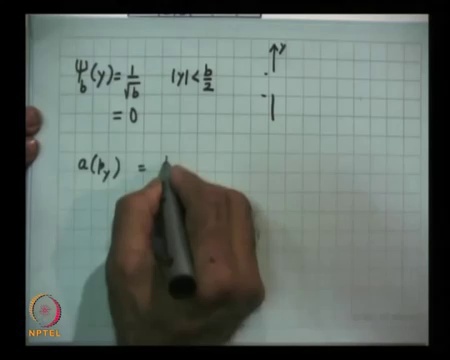 ψ_b(y) = 1/√b |y| < b/2
= 0
y
a(p_y) =
NPTEL